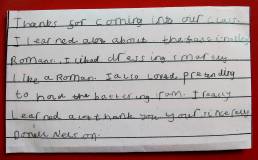 Thanks for coming into our class
I learned alot about the fascinating
Romans. I liked dressing smartly
like a Roman. I also loved pretending
to hold the battering ram. I really
learned alot thank you yours sincerely
Donald Nelson.